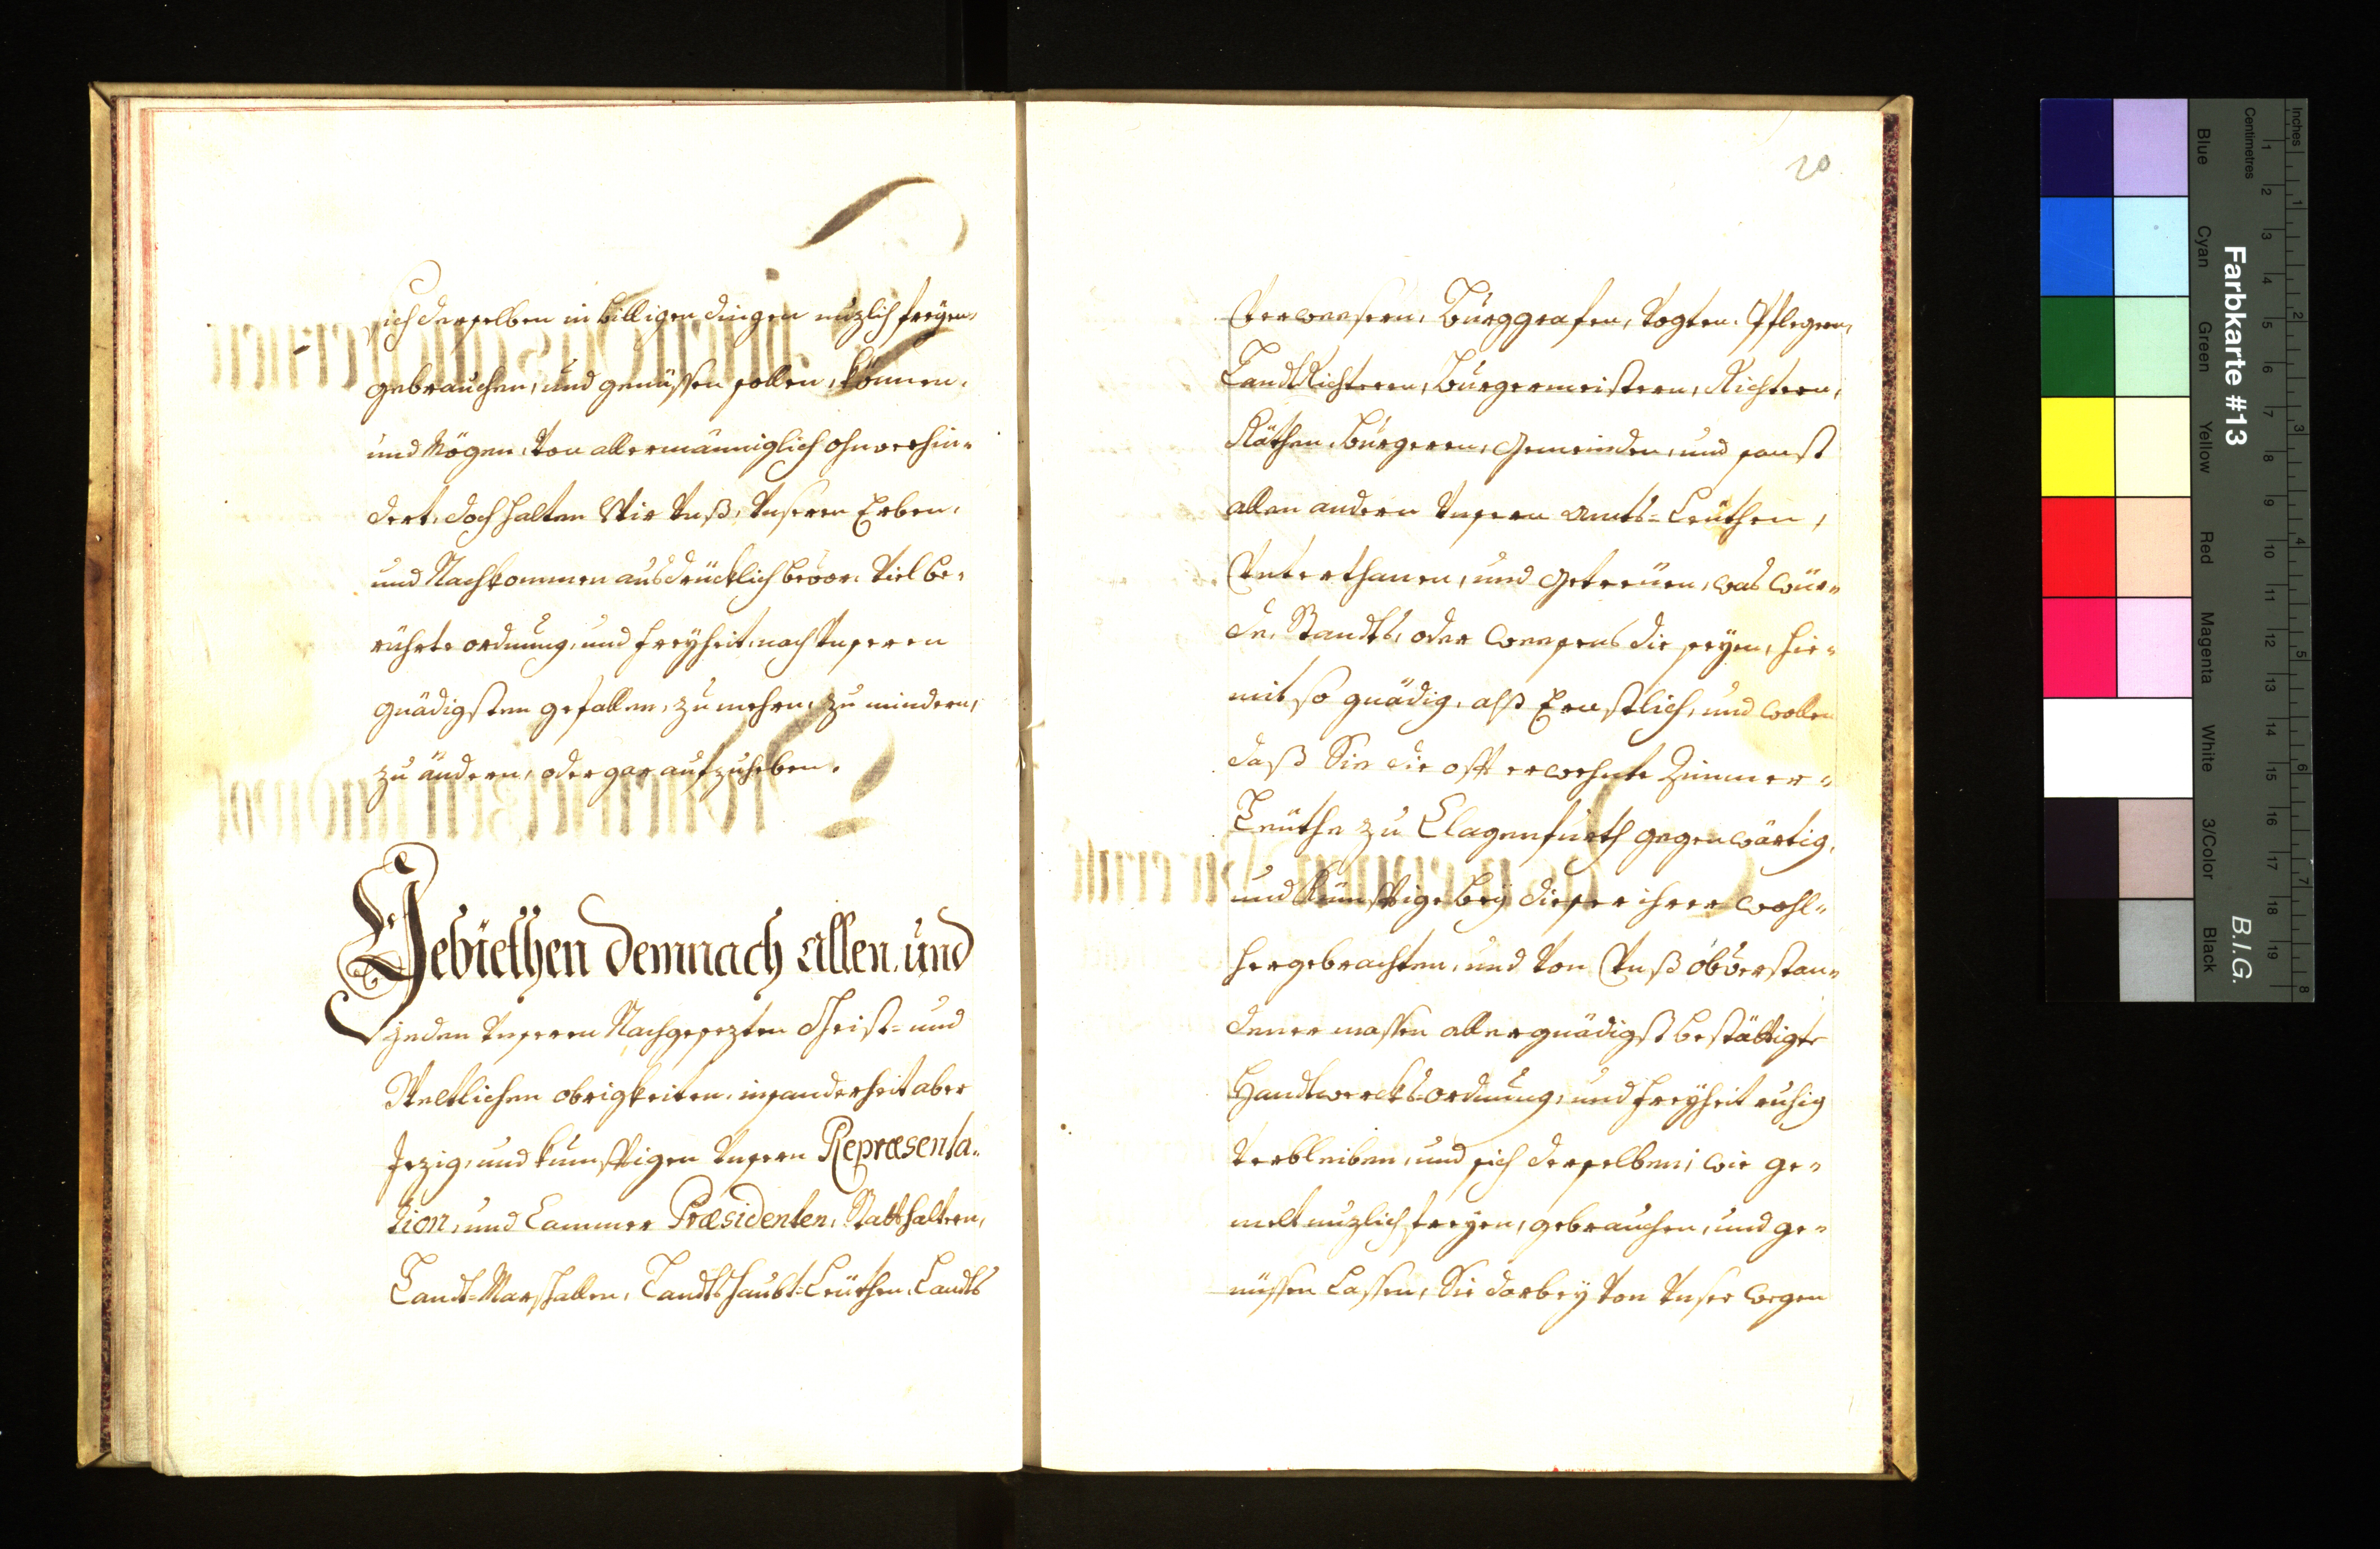 sich derselben in billigen dingen nuzlich freÿen,
gebrauchen, und genüssen sollen, können,
und Mögen, Von allermänniglich ohnverhin-
dert, doch halten Wir Vnß, Vnseren Erben,
und Nachkommen ausdrücklich bevor, Viel be-
rührte ordnung, und freÿheit, nach Vnseren
gnädigsten gefallen, zu mehren, zu mindern,
zu ändern, oder gar aufzuheben.
Gebiethen demnach allen, und
jeden Vnseren Nachgesezten Geist- und
Weltlichen obrigkeiten, insonderheit aber
Jezig, und kunfftigen Vnsern Repræsenta-
tion, und Cammer Præsidenten, Statthaltern,
Landt-Marschallen, Landtshaubt-Leüthen, Landts
20
Verweesern, Burggrafen, Vogten, Pflegern,
LandtRichteren, Burgermeistern, Richtern,
Räthen, Burgeren, Gemeinden, und sonst
allen andern Vnsern Amts-Leüthen,
Vnterthanen, und Getreüen, was Wür-
de, Standts, oder Weesens die seÿen, hie-
mit so gnädig, alß Ernstlich, und wollen
daß Sie die offt erwehnte Zimmer-
Leüthe zu Clagenfurth gegenwärtig,
und Künfftige beÿ dieser ihrer wohl-
hergebrachten, und Von Vnß obverstan-
dener massen allergnädigst bestättigte
Handtwercks-ordnung, und freÿheit ruhig
Verbleiben, und sich derselben, wie ge-
melt nuzlich freÿen, gebrauchen, und ge-
nüssen lassen, Sie darbeÿ Von Vnser wegen
Inches
Centimetres
Farbkarte #13
B.I.G.
Blue
Cyan
Green
Yellow
Red
Magenta
White
3/Color
Black
1 2 3 4 5 6 7 8 9 10 11 12 13 14 15 16 17 18 19
1 2 3 4 5 6 7 8